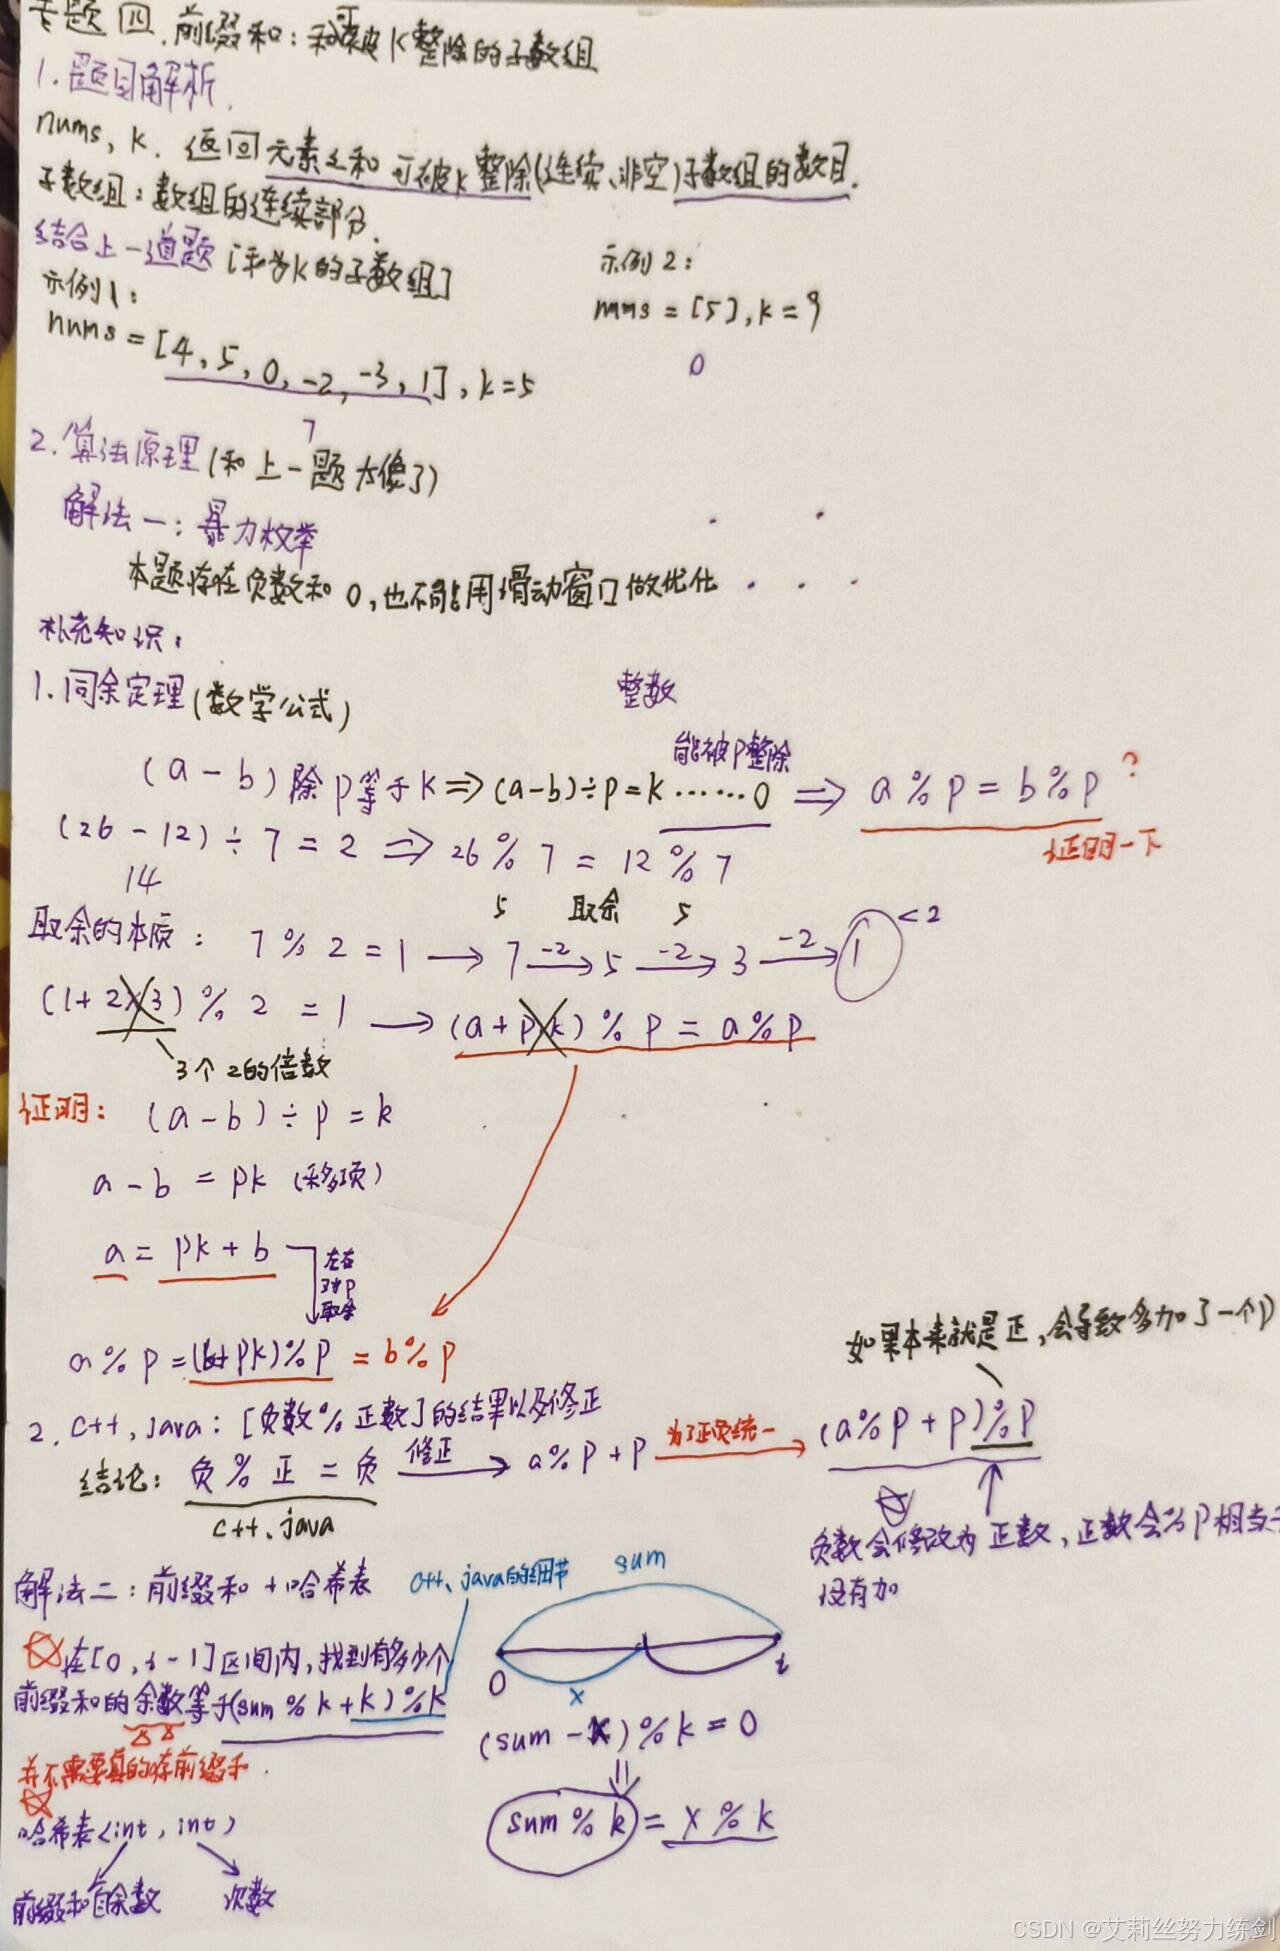 专题四.前缀和:和可被K整除的子数组
1.题目解析.
nums,k. 返回元素之和可被k整除(连续、非空)子数组的数目.
子数组:数组的连续部分.
结合上一道题[和为k的子数组]
示例1:
nums=[4,5,0,-2,-3,1],k=5
7
示例2:
nums=[5],k=9
0
2.算法原理(和上一题太像了)
解法一:暴力枚举
本题存在负数和0,也不能用滑动窗口做优化
补充知识:
1.同余定理(数学公式)
整数
能被p整除
(a-b)除p等于k⇒(a-b)÷p=k……0⇒a%p=b%p?
证明一下
(26-12)÷7=2⇒26%7=12%7
14
5 取余 5
取余的本质:7%2=1→7 -2→5 -2→3 -2→1 <2
(1+2×3)%2=1→(a+p×k)%p=a%p
3个2的倍数
证明:(a-b)÷p=k
a-b=pk(移项)
a=pk+b
左右
对p
取余
a%p=(b+pk)%p=b%p
2.c++,java:[负数%正数]的结果以及修正
结论:负%正=负 修正→a%p+p 为了正负统一→(a%p+p)%p
c++、java
如果本来就是正,会导致多加了一个p
负数会修改为正数,正数会%p相当于
没有加
解法二:前缀和+哈希表
c++、java的细节
sum
在[0,i-1]区间内,找到有多少个
前缀和的余数等于(sum%k+k)%k
0 x i
(sum-x)%k=0
sum%k=x%k
并不需要真的弄前缀和.
哈希表<int,int>
前缀和的余数 次数
CSDN @艾莉丝努力练剑